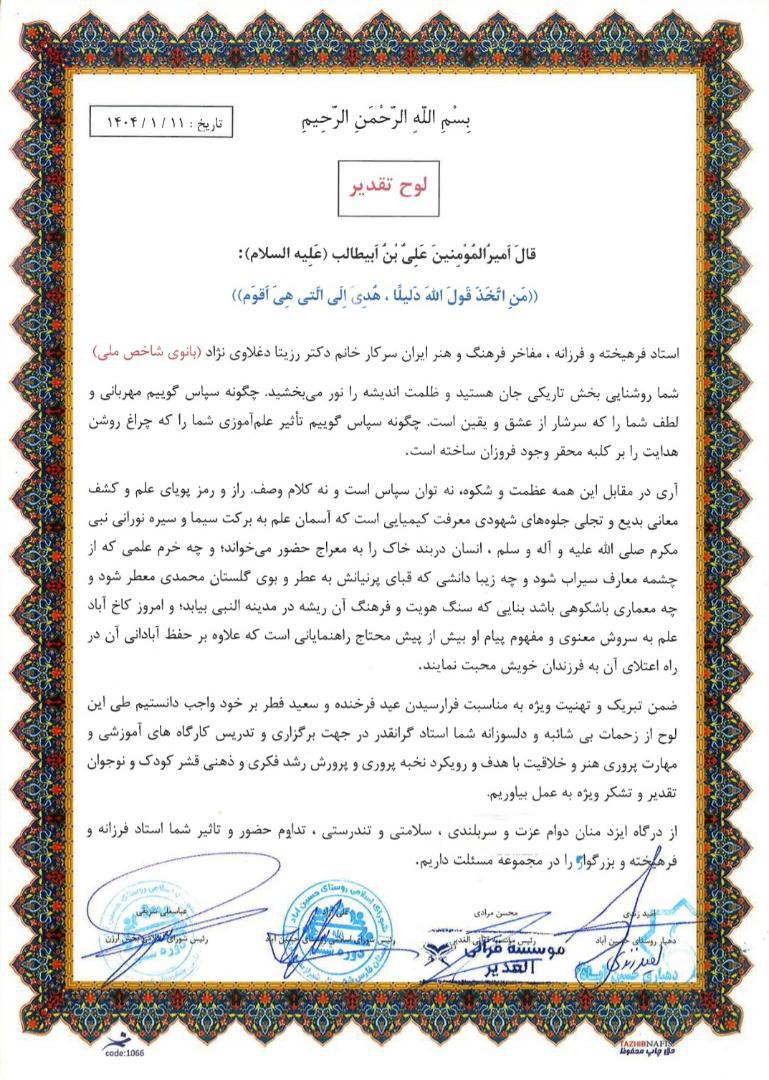 بِسْمِ اللّهِ الرّحْمَنِ الرّحِیمِ
تاریخ : ۱۱ / ۱ / ۱۴۰۴
لوح تقدیر
قالَ اَمیرُالمُؤمِنینَ عَلِیُّ بْنُ اَبیطالب (عَلیه السلام):
((مَنِ اتَّخَذَ قَولَ اللهَ دَلیلًا ، هُدِیَ اِلَی الَّتی هِیَ اَقوَم))
استاد فرهیخته و فرزانه ، مفاخر فرهنگ و هنر ایران سرکار خانم دکتر رزیتا دغلاوی نژاد (بانوی شاخص ملی)
شما روشنایی بخش تاریکی جان هستید و ظلمت اندیشه را نور می‌بخشید. چگونه سپاس گوییم مهربانی و
لطف شما را که سرشار از عشق و یقین است. چگونه سپاس گوییم تأثیر علم‌آموزی شما را که چراغ روشن
هدایت را بر کلبه محقر وجود فروزان ساخته است.
آری در مقابل این همه عظمت و شکوه، نه توان سپاس است و نه کلام وصف. راز و رمز پویای علم و کشف
معانی بدیع و تجلی جلوه‌های شهودی معرفت کیمیایی است که آسمان علم به برکت سیما و سیره نورانی نبی
مکرم صلی الله علیه و آله و سلم ، انسان دربند خاک را به معراج حضور می‌خواند؛ و چه خرم علمی که از
چشمه معارف سیراب شود و چه زیبا دانشی که قبای پرنیانش به عطر و بوی گلستان محمدی معطر شود و
چه معماری باشکوهی باشد بنایی که سنگ هویت و فرهنگ آن ریشه در مدینه النبی بیابد؛ و امروز کاخ آباد
علم به سروش معنوی و مفهوم پیام او بیش از پیش محتاج راهنمایانی است که علاوه بر حفظ آبادانی آن در
راه اعتلای آن به فرزندان خویش محبت نمایند.
ضمن تبریک و تهنیت ویژه به مناسبت فرارسیدن عید فرخنده و سعید فطر بر خود واجب دانستیم طی این
لوح از زحمات بی شائبه و دلسوزانه شما استاد گرانقدر در جهت برگزاری و تدریس کارگاه های آموزشی و
مهارت پروری هنر و خلاقیت با هدف و رویکرد نخبه پروری و پرورش رشد فکری و ذهنی قشر کودک و نوجوان
تقدیر و تشکر ویژه به عمل بیاوریم.
از درگاه ایزد منان دوام عزت و سربلندی ، سلامتی و تندرستی ، تداوم حضور و تاثیر شما استاد فرزانه و
فرهیخته و بزرگوار را در مجموعه مسئلت داریم.
امید زندی
دهیار روستای حسین آباد
دهیاری حسین آباد
محسن مرادی
رئیس موسسه قرآنی الغدیر
موسسه قرآنی
الغدیر
رئیس شورای اسلامی روستای حسین آباد
شورای اسلامی روستای حسین آباد
عباسعلی شریفی
رئیس شورای بخش ارژن
code:1066
TAZHIBNAFIS
حق چاپ محفوظ